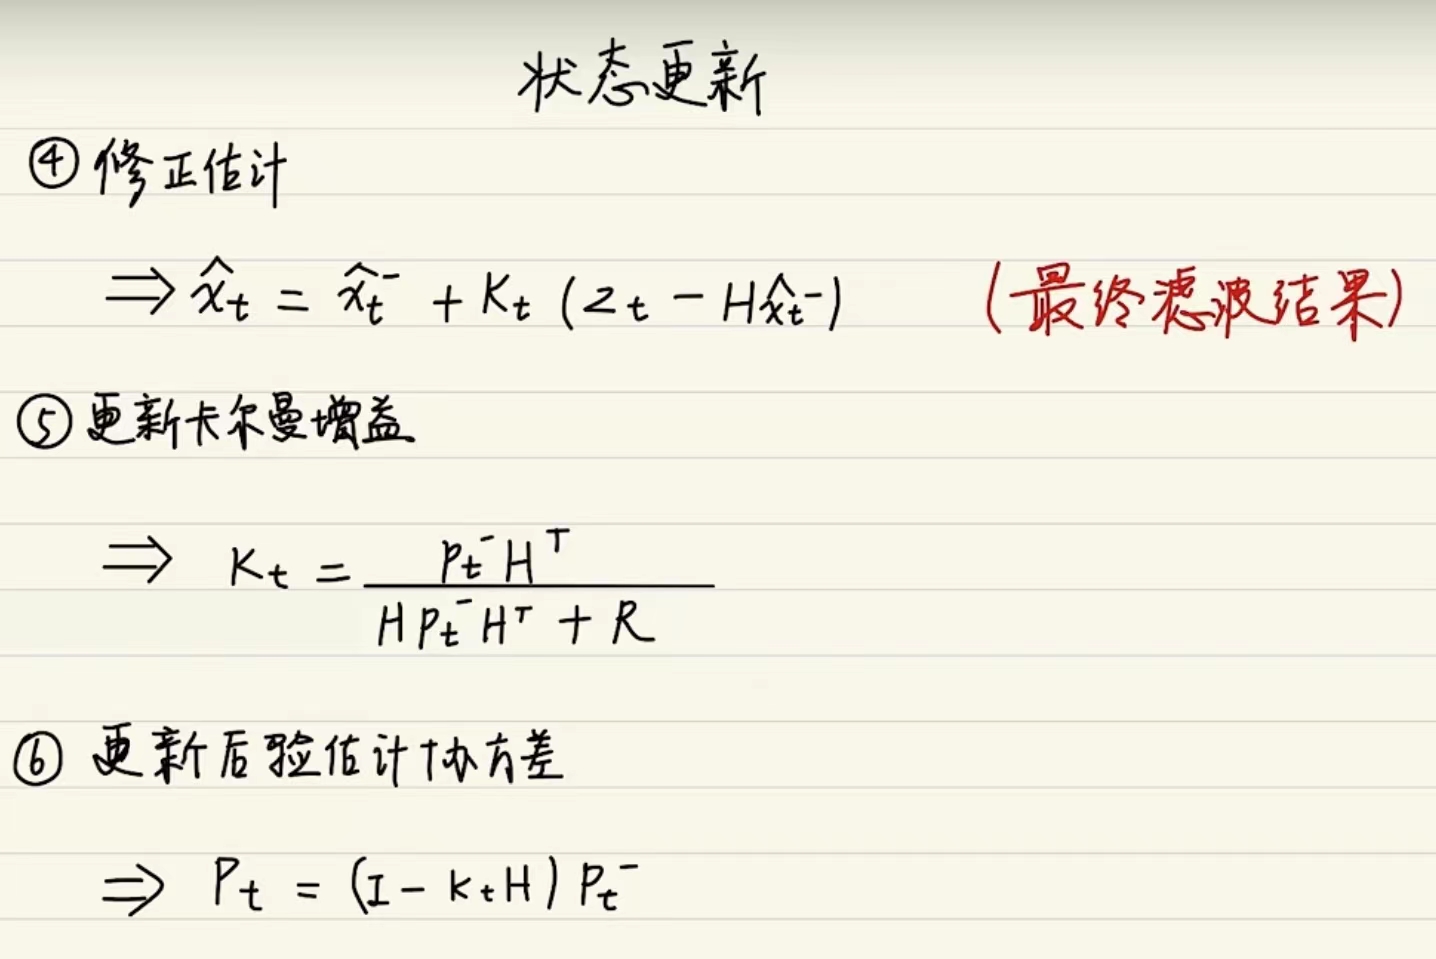 状态更新
④ 修正估计
⇒ x̂ₜ = x̂ₜ⁻ + Kₜ (zₜ - Hx̂ₜ⁻) (最终滤波结果)
⑤ 更新卡尔曼增益
⇒ Kₜ = Pₜ⁻Hᵀ / HPₜ⁻Hᵀ + R
⑥ 更新后验估计协方差
⇒ Pₜ = (I - KₜH) Pₜ⁻